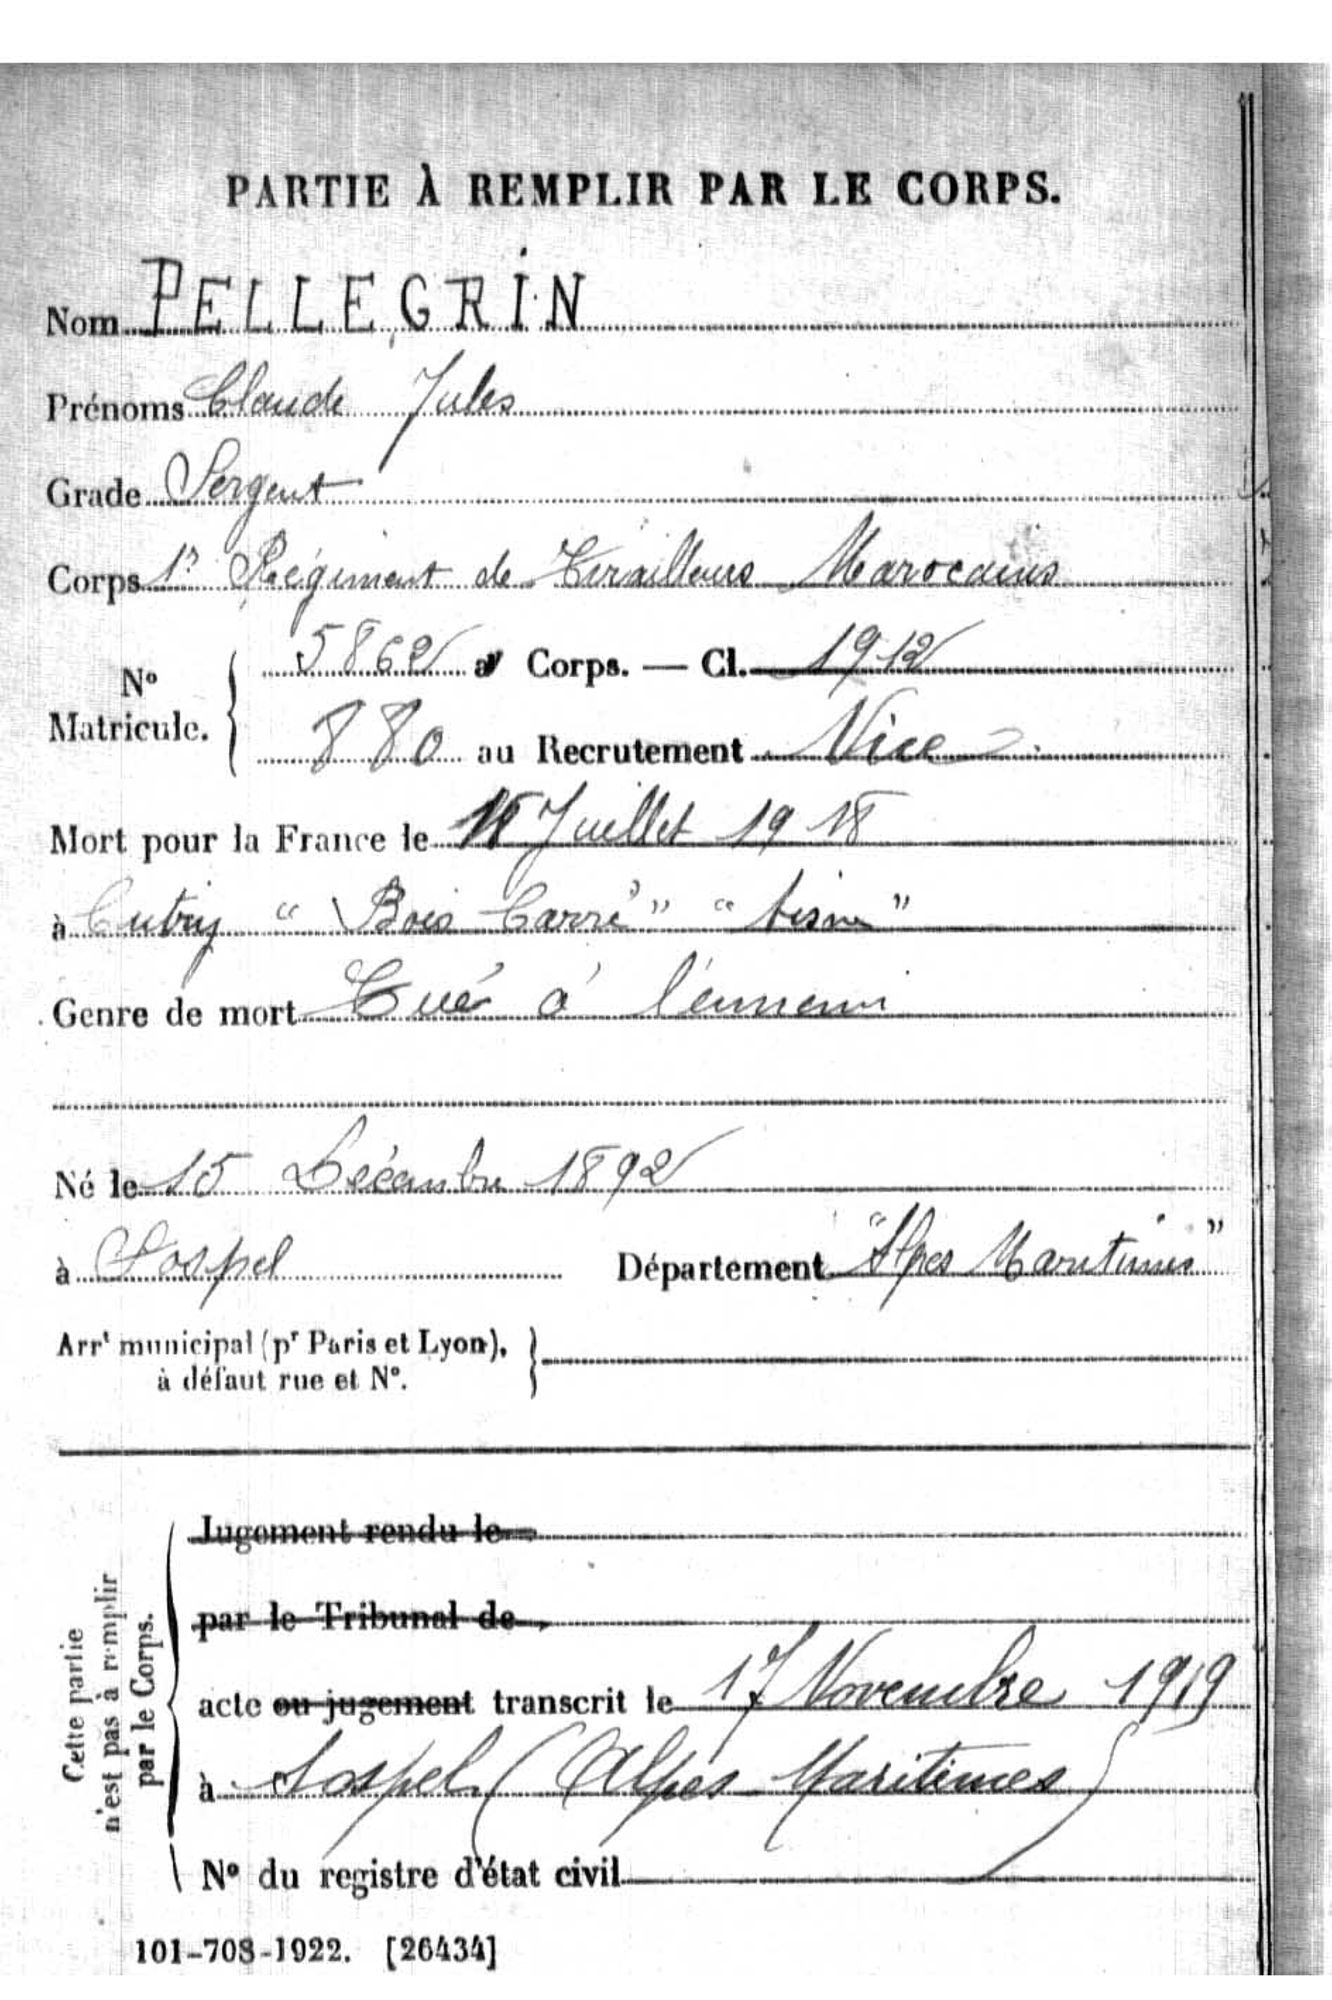 PARTIE À REMPLIR PAR LE CORPS.
Nom PELLEGRIN
Prénoms Claude Jules
Grade Sergent
Corps 1r Régiment de Tirailleurs Marocains
No Matricule. 5862 au Corps. — Cl. 1912
880 au Recrutement Nice
Mort pour la France le Juillet 1918
à Cutry " Bois Carré" "Aisne"
Genre de mort Tué à l'ennemi
Né le 15 Décembre 1892
à Sospel Département "Alpes Maritimes"
Arrt municipal (pr Paris et Lyon),
à défaut rue et No.
Cette partie
n'est pas à remplir
par le Corps.
Jugement rendu le
par le Tribunal de
acte ou jugement transcrit le 17 Novembre 1919
à Sospel (Alpes Maritimes)
No du registre d'état civil
101-708-1922. [26434]